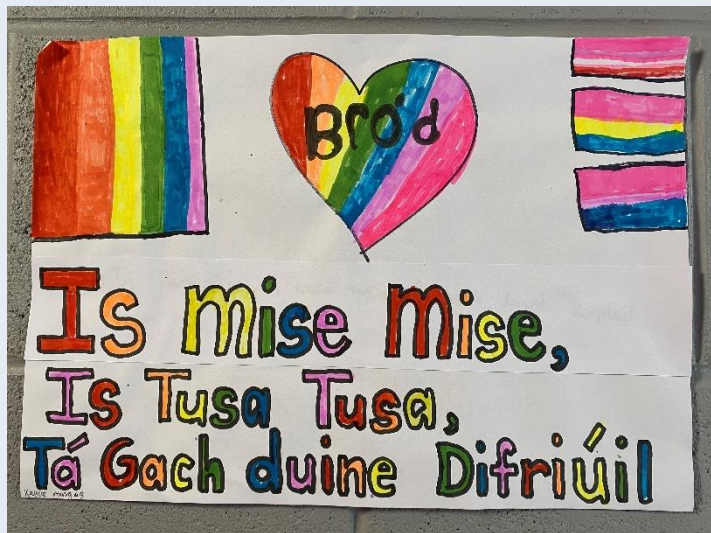 Bród
Is mise Mise,
Is Tusa Tusa,
Tá Gach duine Difriúil